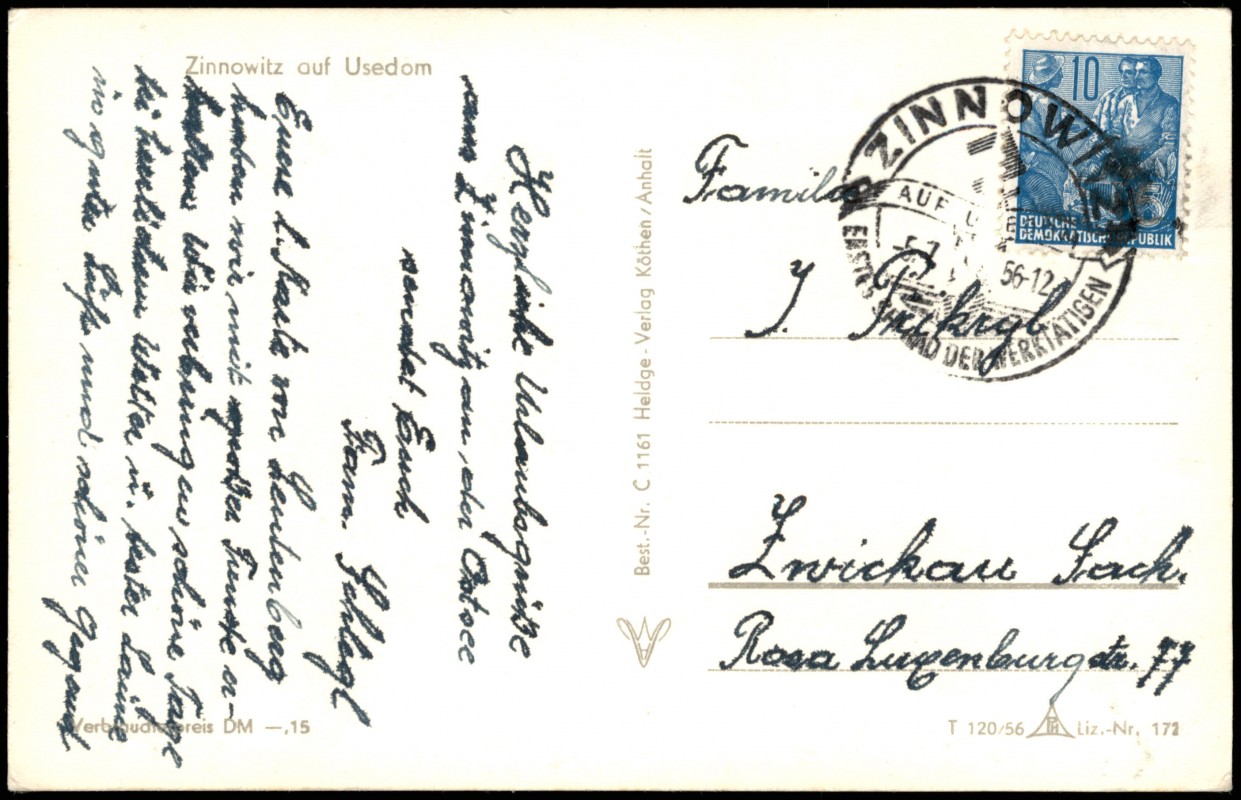 Zinnowitz auf Usedom
Herzliche Urlaubsgrüße
vom Zinnowitz an der Ostsee
sendet Euch
Fam. Schlegl
Eure l. Karte von Leutenberg
haben wir mit großer Freude er-
halten. Wir verbringen schöne Tage
bei herrlichem Wetter u. bester Laune
in guter Luft und schöner Gegend
Verbraucherpreis DM —,15
Best.-Nr. C 1161 Heldge-Verlag Köthen/Anhalt
10
DEUTSCHE
DEMOKRATISCHE REPUBLIK
ZINNOWITZ
AUF
5.7. 56-12
ERSTES SEEBAD DER WERKTÄTIGEN
Familie
J.
Zwickau Sach.
Rosa Luxenburgstr. 77
T 120/56 Liz.-Nr. 172